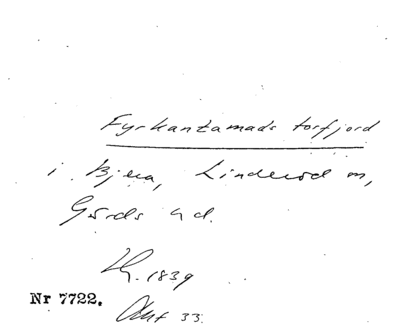 Fyrkantamads torfjord
i Bjera, Linderöd sn,
Gärds hd.
Lg. 1839
Nr 7722.
Akt 33.